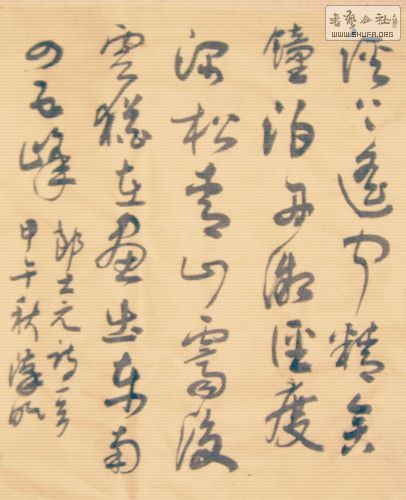 溪上遙聞精舍
鐘泊舟微徑度
深松青山霽後
雲猶在畫出東南
四五峰
郎士元詩一首
甲午秋
書藝公社
WWW.SHUFA.ORG